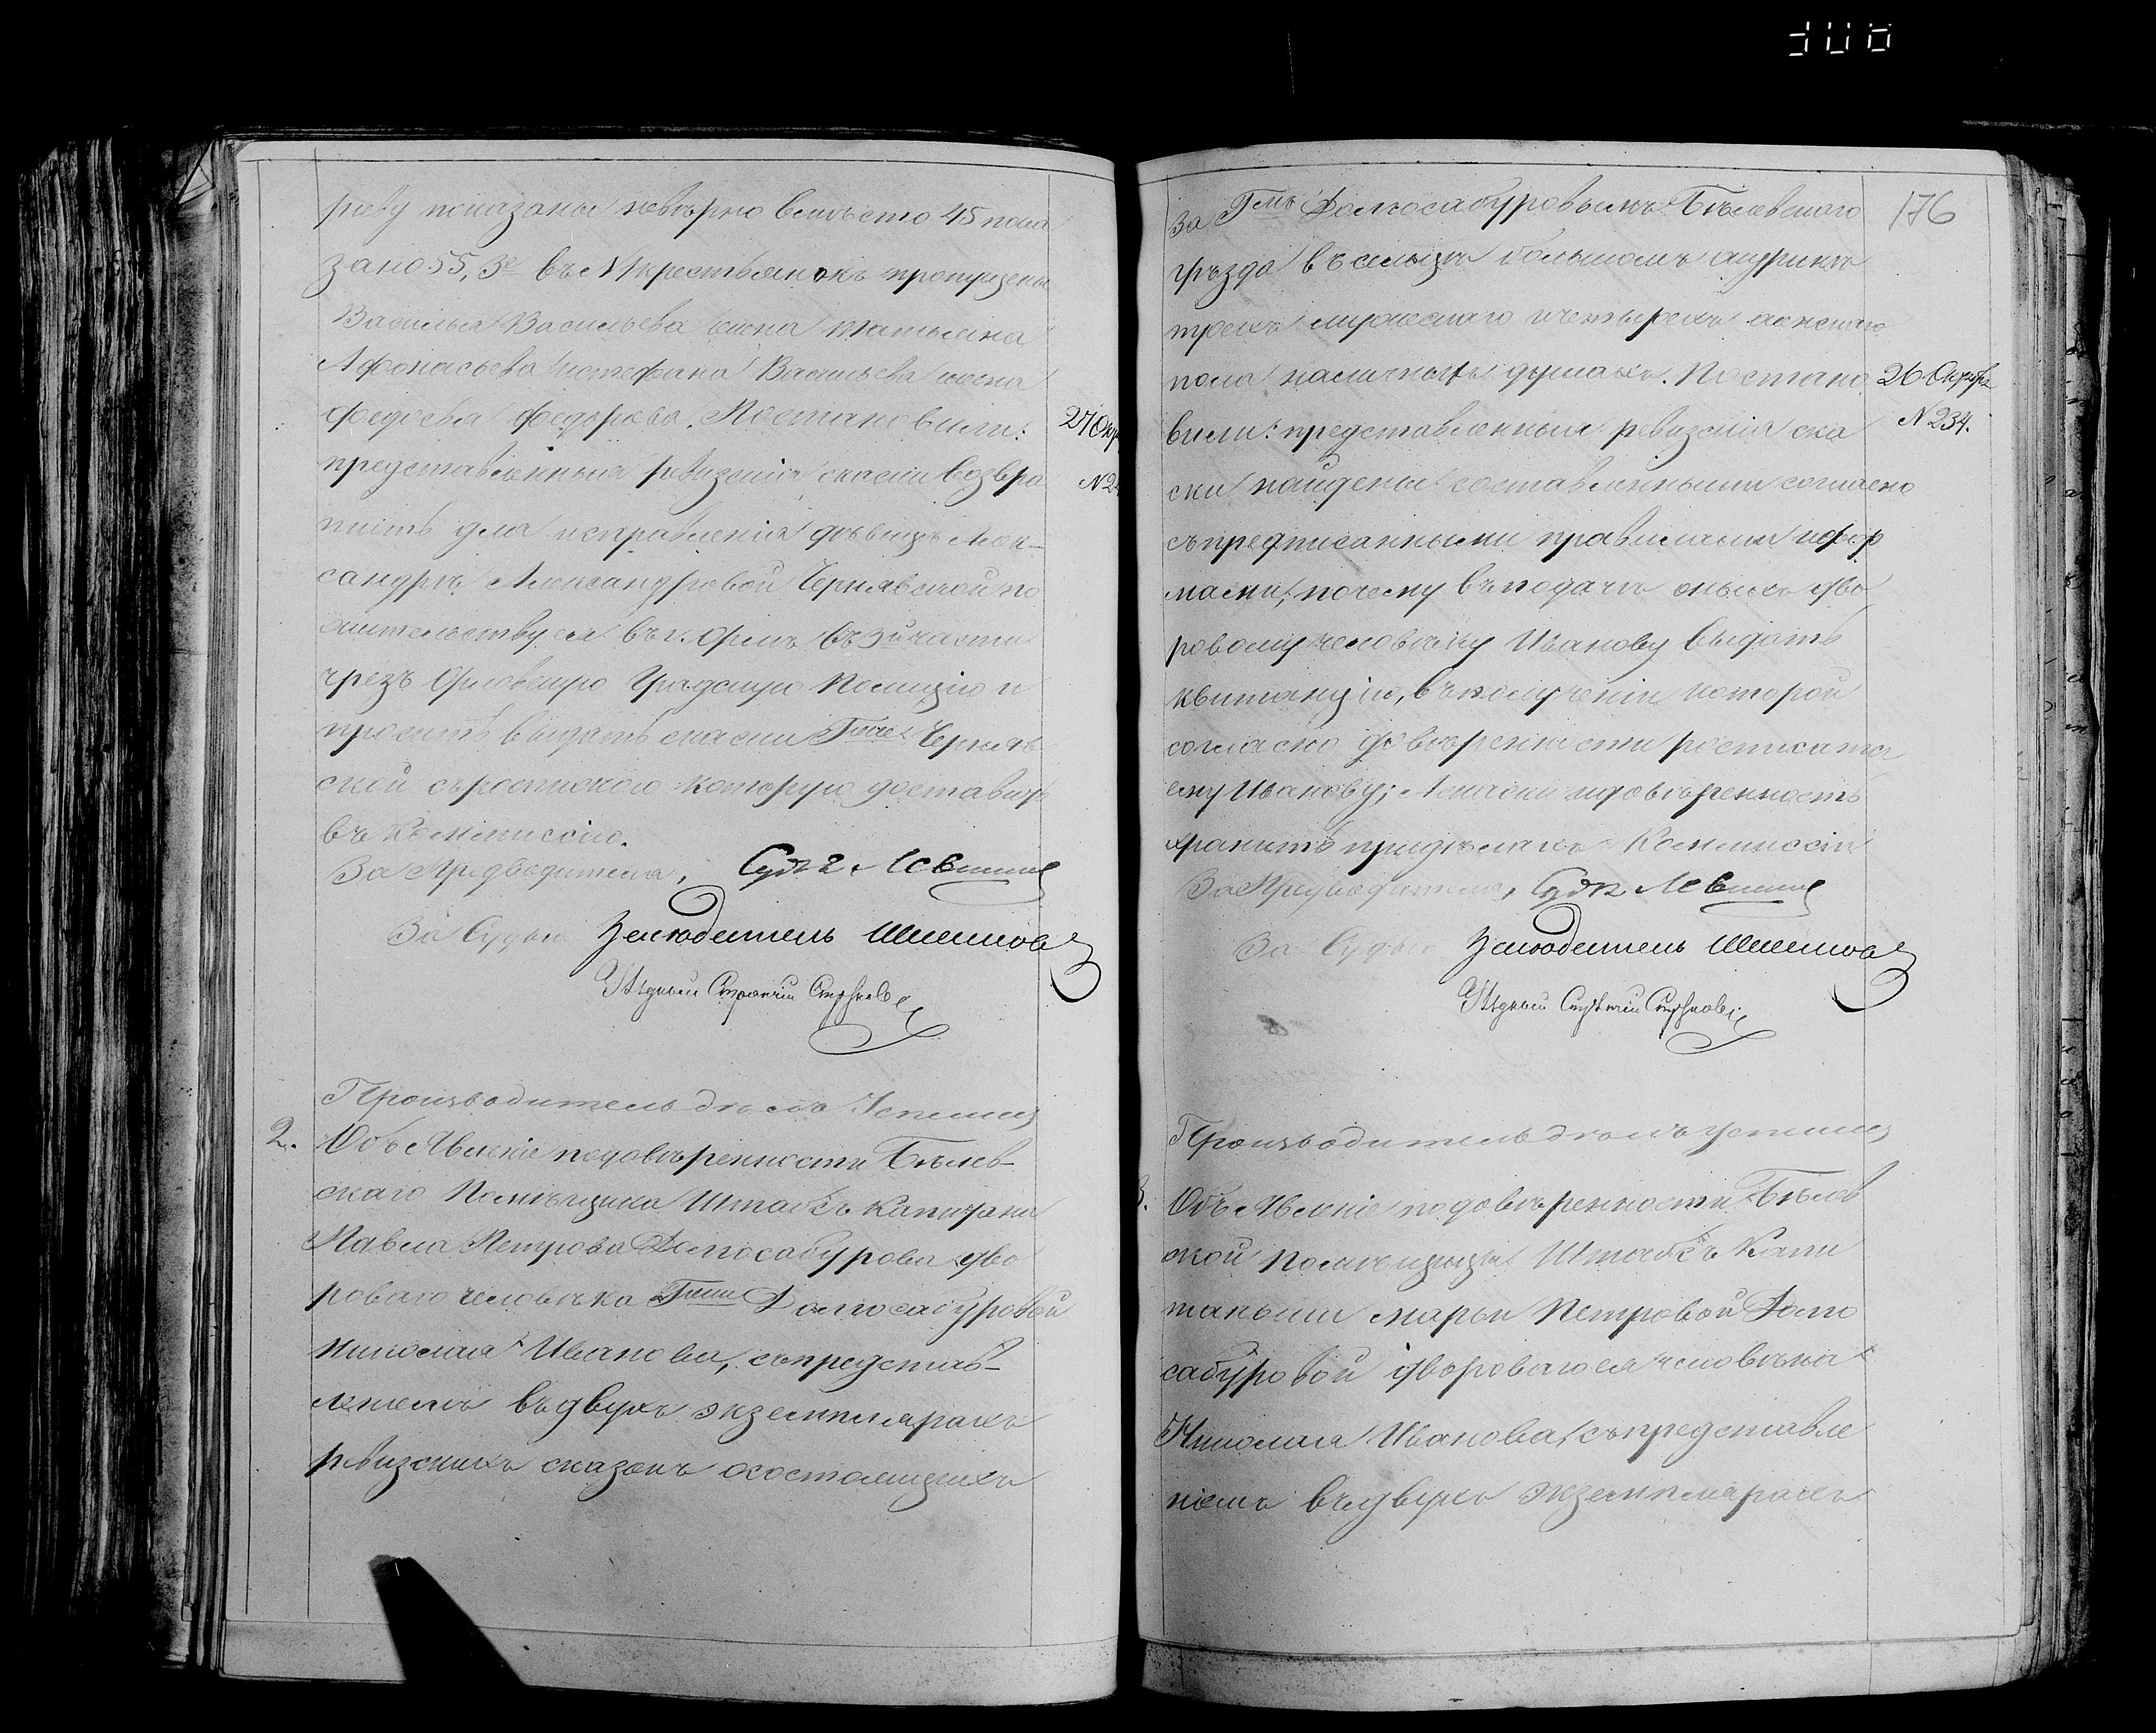 рьеву показаны невѣрно вмѣсто 45 пока
зано 55, 3е въ № крестьянокъ пропущены
Василья Васильева жена Татьяна
Афонасьева и Стефана Васильева жена
Федосья Федорова. Постановили:
представленныя ревизскія сказки возвра
тить для исправленія дѣвицѣ Алек-
сандрѣ Александровой Чернявской по
жительству ея въ г. Орлѣ въ 3й части
чрезъ Орловскую Градскую Полицію и
просить выдать сказки Гжѣ Черняв
ской съ роспискою которую доставить
въ Коммиссію.
За Предводителя, Судья Левшинъ
За Судью Засѣдатель
Уѣздный Стряпчій
Производитель дѣлъ Успенскій
27 Октя
N 2
2. Объявленіе по довѣренности Бѣлев-
скаго Помѣщика Штабсъ Капитана
Павла Петрова Долгосабурова дво
роваго человѣка Гжи Долгосабуровой
Николая Иванова, съ представ-
леніемъ въ двухъ экземплярахъ
ревизскихъ сказокъ о состоящихъ
176
за Гмъ Долгосабуровымъ Бѣлевскаго
уѣзда въ сельцѣ большомъ
трехъ мужескаго и четырехъ женскаго
пола наличныхъ душахъ. Постано
вили: представленныя ревизскія ска
ски найдены составленными согласно
съ предписанными правилами и фор
мами, почему въ подачѣ оныхъ дво
ровому человѣку Иванову выдать
квитанцію, въ полученіи которой
согласно довѣренности росписаться
ему Иванову; А сказки и довѣренность
хранить при дѣлахъ Коммиссіи
26 Октября
N 234.
За Предводителя, Судья Левшинъ
За Судью Засѣдатель
Уѣздный Стряпчій
Производитель дѣлъ Успенскій
3. Объявленіе по довѣренности Бѣлев
ской помѣщицы Штабсъ Капи
танши Марьи Петровой Долго
сабуровой двороваго ея человѣка
Николая Иванова, съ представле
ніемъ въ двухъ экземплярахъ